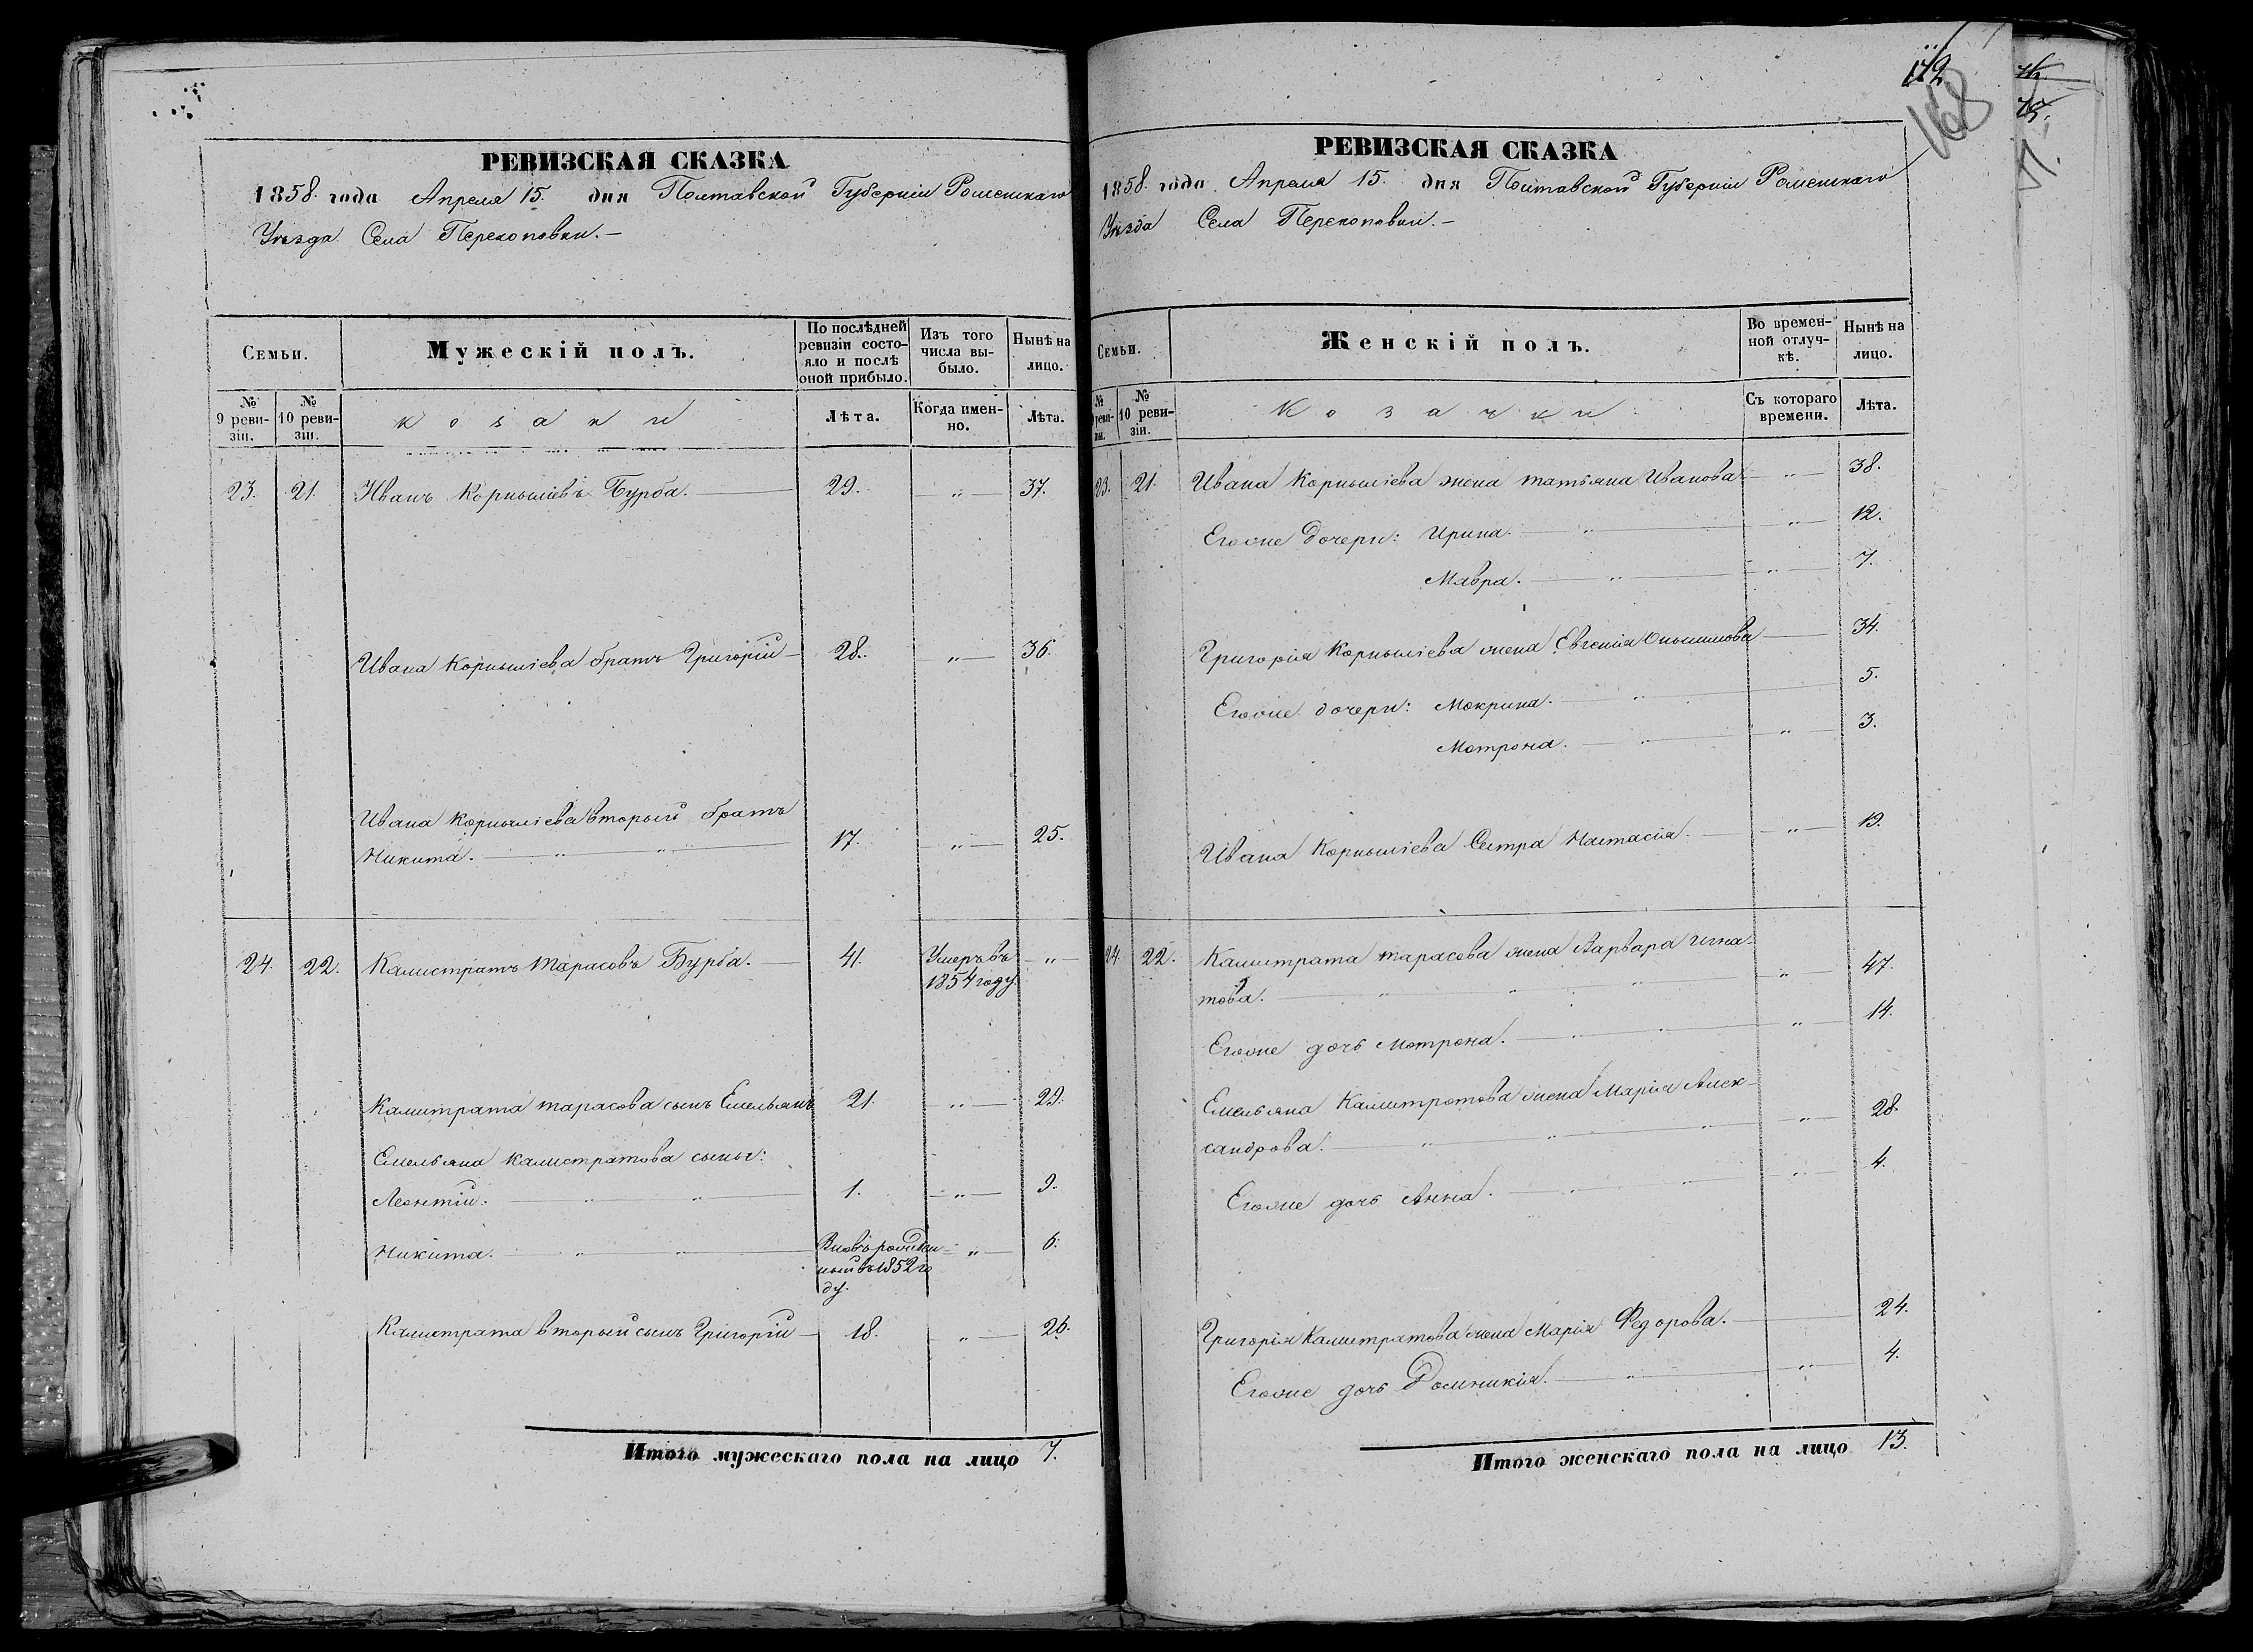 РЕВИЗСКАЯ СКАЗКА
1858. года Апреля 15. дня Полтавской Губерніи Роменскаго
Уѣзда Села Перекоповки.—
Семьи.
Мужескій полъ.
По послѣдней ревизіи состояло и послѣ оной прибыло.
Изъ того числа выбыло.
Нынѣ на лицо.
№ 9 ревизіи.
№ 10 ревизіи.
Козаки
Лѣта.
Когда именно.
Лѣта.
23. 21. Иванъ Корнылiевъ Бурба. 29. „ 37.
Ивана Корнылiева братъ Григорій 28. „ 36.
Ивана Корнылiева вторый братъ
Никита. „ „ 17. „ 25.
24. 22. Калистратъ Тарасовъ Бурба. 41. Умеръ въ „
1854 году
Калистрата Тарасова сынъ Емельянъ 21. „ 29.
Емельяна Калистратова сыны:
Леонтій. „ „ 1. „ 9.
Никита. „ „ Вновь рожден- „ 6.
ный въ 1852 го
ду.
Калистрата вторый сынъ Григорій 18. „ 26.
Итого мужескаго пола на лицо 7.
172
168
РЕВИЗСКАЯ СКАЗКА
1858. года Апреля 15. дня Полтавской Губерніи Роменскаго
Уѣзда Села Перекоповки.—
Семьи.
Женскій полъ.
Во временной отлучкѣ.
Нынѣ на лицо.
№ 9 ревизіи.
№ 10 ревизіи.
Козачки
Съ котораго времени.
Лѣта.
23. 21. Ивана Корнылiева жена Татьяна Иванова „ 38.
Егоже дочери: Ирина. „ „ 12.
Мавра. „ „ 7.
Григорія Корнылiева жена Евгенія Онысимова 34.
Егоже дочери: Мокрина. „ 5.
Мотрона. „ „ 3.
Ивана Корнылiева Сестра Настасія. „ 19.
24. 22. Калистрата Тарасова жена Варвара Игна-
това. „ „ „ „ 47.
Егоже дочь Мотрона. „ „ „ 14.
Емельяна Калистратова жена Марія Алек-
сандрова. „ „ „ „ 28.
Егоже дочь Анна. „ „ „ 4.
Григорія Калистратова жена Марія Федорова. 24.
Егоже дочь Домникія. „ „ 4.
Итого женскаго пола на лицо 13.